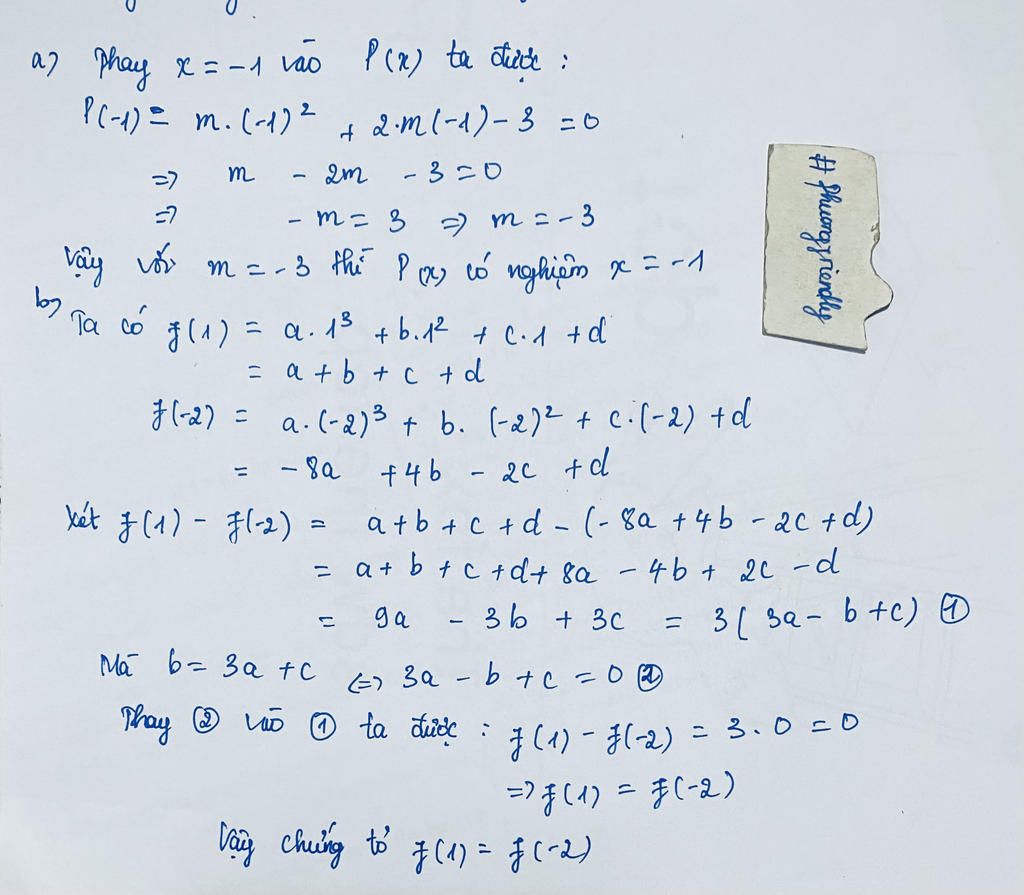 a) Thay x = -1 vào P(x) ta được :
P(-1) = m.(-1)² + 2.m(-1) - 3 = 0
=> m - 2m - 3 = 0
=> - m = 3 => m = -3
Vậy với m = -3 thì P(x) có nghiệm x = -1
b) Ta có f(1) = a.1³ + b.1² + c.1 + d
= a + b + c + d
f(-2) = a.(-2)³ + b.(-2)² + c.(-2) + d
= -8a + 4b - 2c + d
Xét f(1) - f(-2) = a + b + c + d - (-8a + 4b - 2c + d)
= a + b + c + d + 8a - 4b + 2c - d
= 9a - 3b + 3c = 3(3a - b + c) ①
Mà b = 3a + c <=> 3a - b + c = 0 ②
Thay ② vào ① ta được : f(1) - f(-2) = 3.0 = 0
=> f(1) = f(-2)
Vậy chứng tỏ f(1) = f(-2)